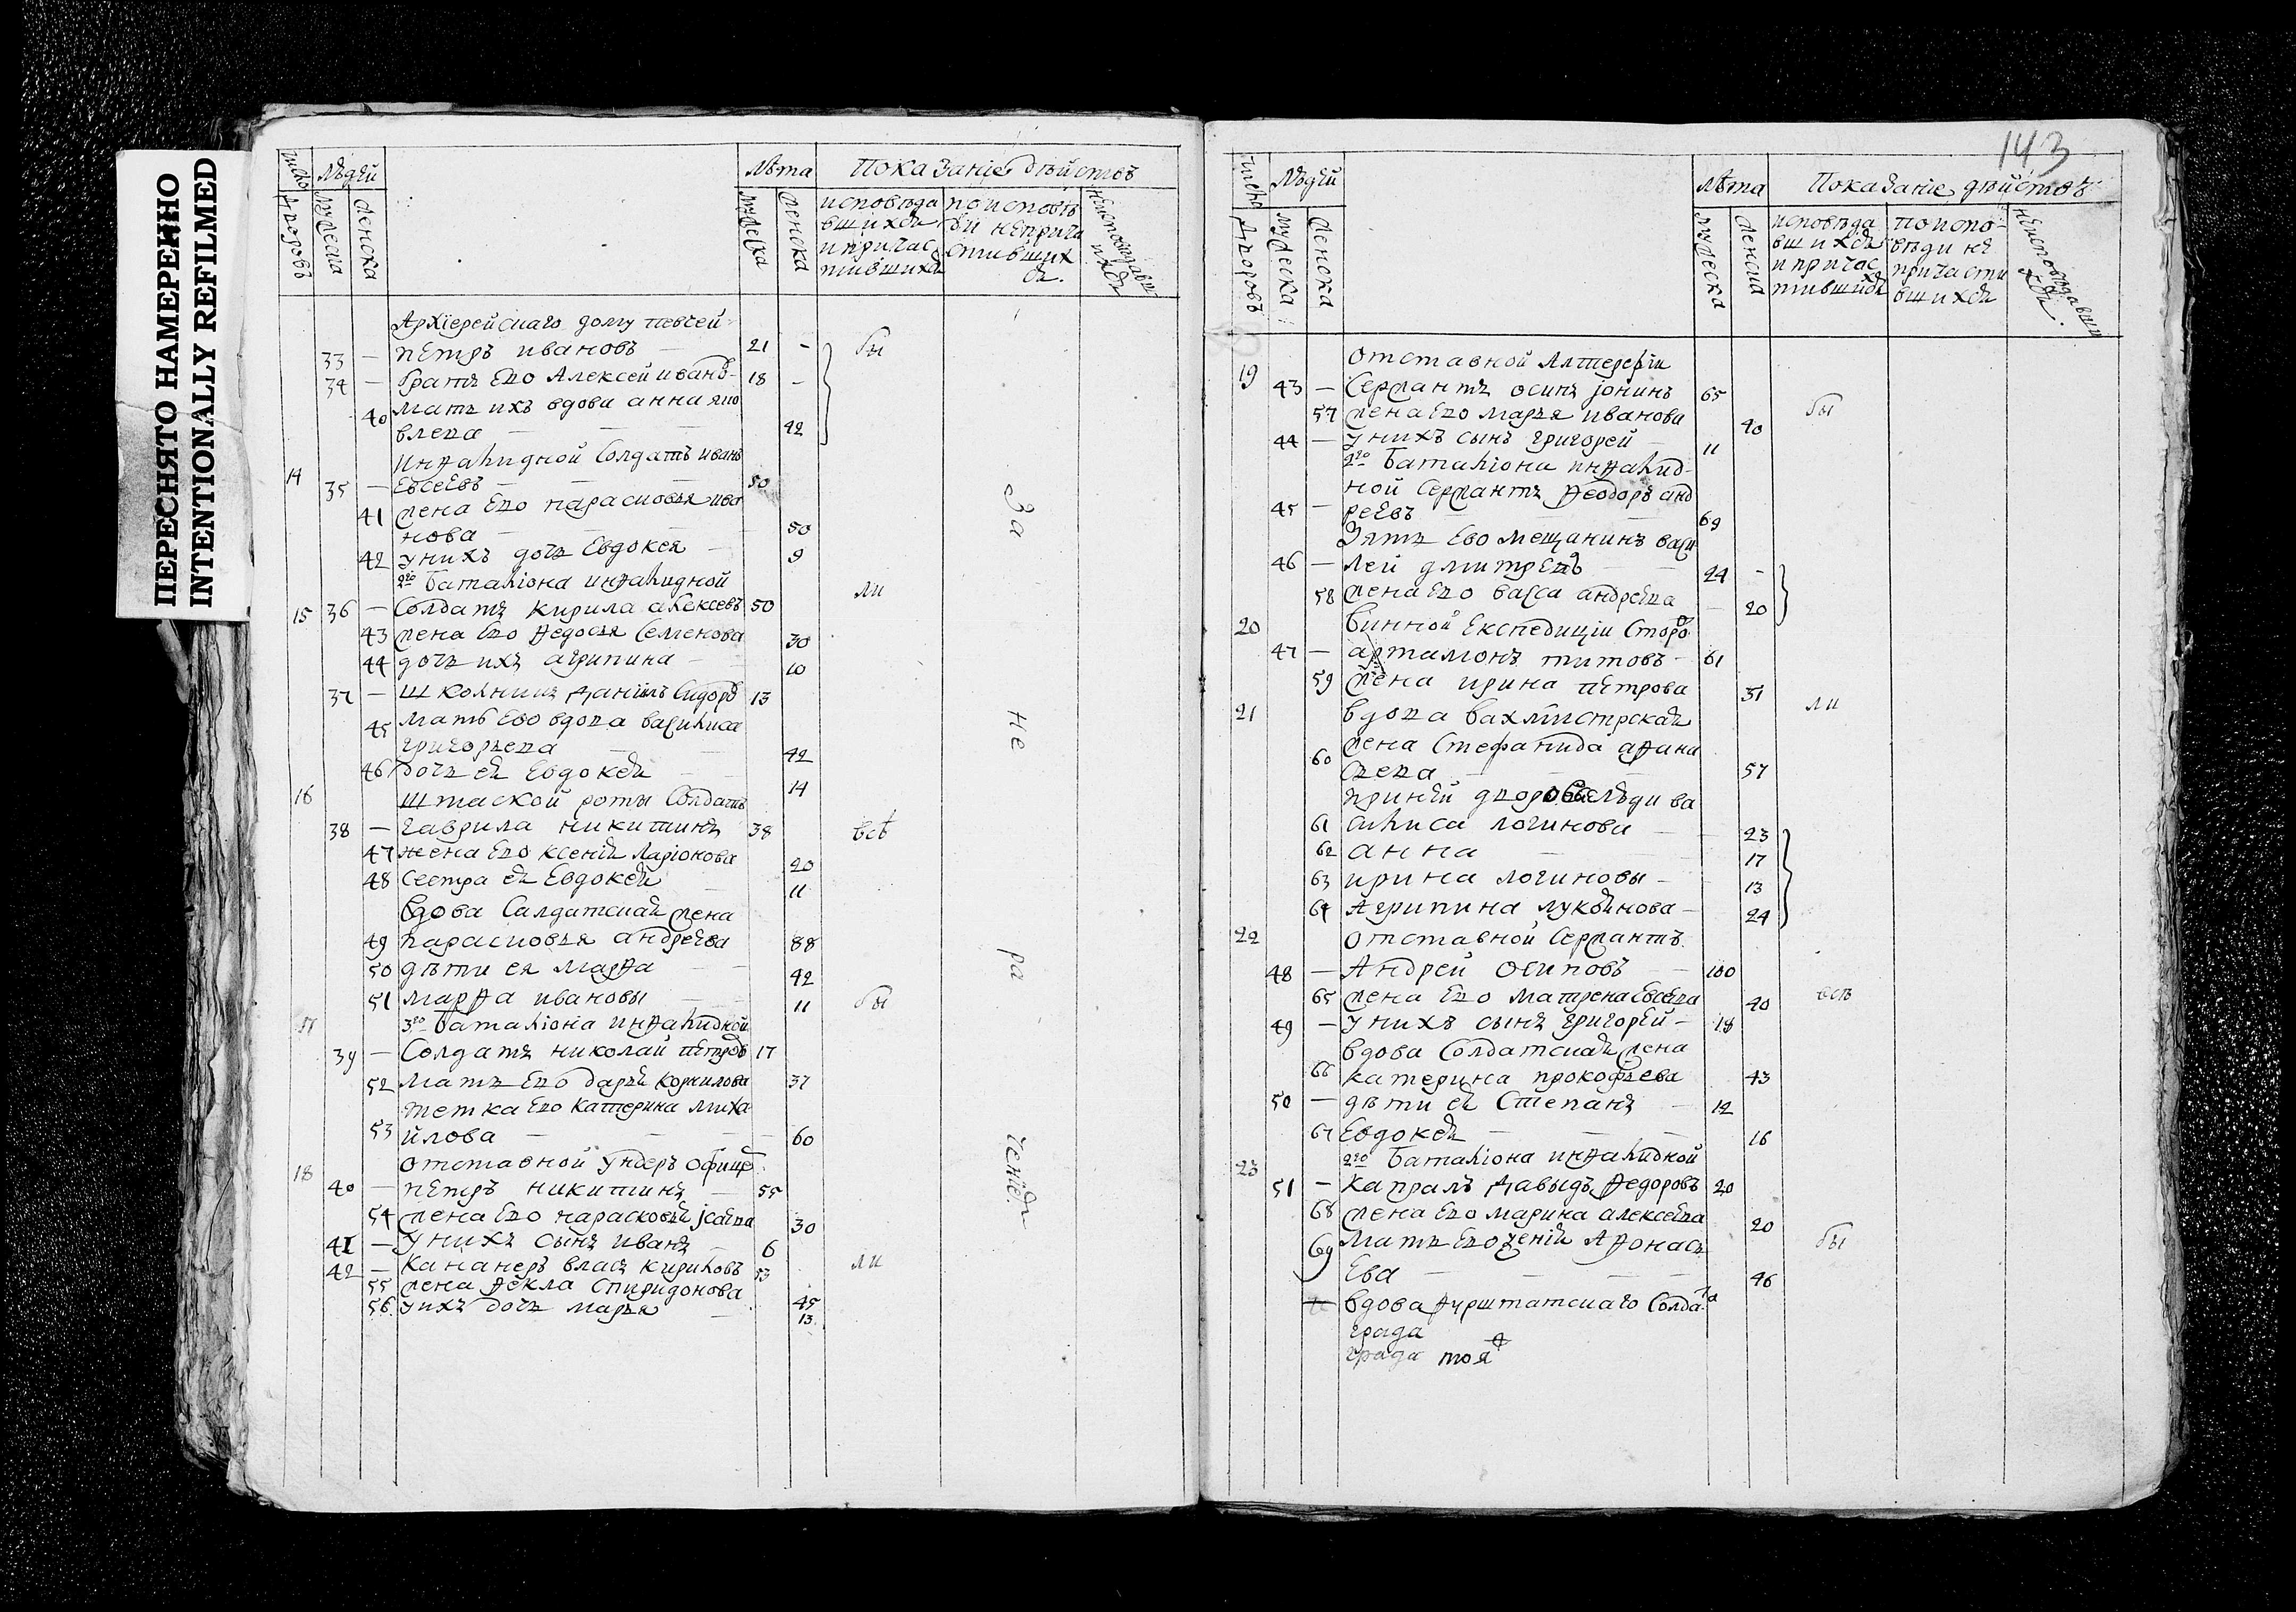 ПЕРЕСНЯТО НАМЕРЕННО
INTENTIONALLY REFILMED
число дворовъ
людей
мужеска
женска
лѣта
мужеска
женска
показаніе дѣйствъ
исповѣда
вшихся
и причас
тившихся
по исповѣ
ди неприча
стивших
ся.
неисповѣдавш
ихся
Архіерейскаго дому певчей
33 — петръ ивановъ — 21 -
34 — братъ Его Алексей ивано- 18 -
40 мать ихъ вдова анна яко
влева — — — 42
инвалидной Солдатъ иванъ
14 35 — Евсеевъ — — 50
41 жена Его парасковья ива
нова — — 50
42 у нихъ дочь Евдокея — 9
2го баталіона инвалидной
15 36 — Солдатъ кирила алексеевъ 50
43 жена Его Федосья Семенова 30
44 дочь ихъ агрипина — 10
37 — школникъ даніилъ Сидоро 13
45 мать Ево вдова василиса
григорьева — 42
46 дочь ея Евдокея — 14
16 штаской роты Солдатъ
38 — гаврила никитинъ 38
47 жена Его ксенія Ларіонова 20
48 Сестра ея Евдокея — 11
вдова Салдатская жена
49 парасковья андреева 88
50 дѣти ея марфа — 42
51 марфа ивановы — 11
17 3го баталіона инвалидной
39 — Солдатъ николай петровъ 17
52 мать Его дарья корнилова 37
тетка Его катерина миха
53 йлова — — — 60
18 отставной ундеръ офице
40 — петръ никитинъ — 55
54 жена Его парасковья ісаева 30
41 — у нихъ сынъ иванъ — 6
42 — Кананеръ власъ кириловъ 53
55 жена фекла Спиридонова 45
56 у ихъ дочь марья — 13
бы
ли
всѣ
бы
ли
За
не
ра
ченіем
143
число дворовъ
людей
мужеска
женска
лѣта
мужеска
женска
Показаніе дѣйствъ
исповѣда
вшихся
и причас
тившихся
по испо-
вѣди не
причасти
вшихся
неисповѣдавши
хся.
19 отставной Алтилеріи
43 — Сержантъ осипъ іонинъ 65
57 жена Его марья иванова 40
44 — у нихъ сынъ григорей — 11
2го баталіона инвалид-
ной Сержантъ Феодоръ анд
45 — реевъ — — 69
Зять Ево мещанинъ васи
46 — лей дмитревъ — 24 -
58 жена Его васса андреева — 20
20 винной Експедиціи Сторо
47 — артамонъ титовъ — 61
59 жена ирина петрова 31
21 вдова вахмистрская
жена Стефанида афана
60 сьева — — 57
при ней дворовыя люди ва
61 силиса логинова — 23
62 анна — — 17
63 ирина логиновы — 13
64 Агрипина лукоянова — 24
22 отставной Сержантъ
48 — Андрей осиповъ — 100
65 жена Его матрена Евсеева 40
49 — у нихъ сынъ григорей — 18
вдова Солдатская жена
66 катерина прокофьева 43
50 — дѣти ея Степанъ — 12
67 Евдокея — — — 16
23 2го баталіона инвалидной
51 — капралъ давыдъ Федоровъ 20
68 жена Его марина алексеева 20
69 мать Его ксенія Афонась
Ева — — — — 46
вдова фурштатскаго Солда
града
града тоя
бы
ли
всѣ
бы